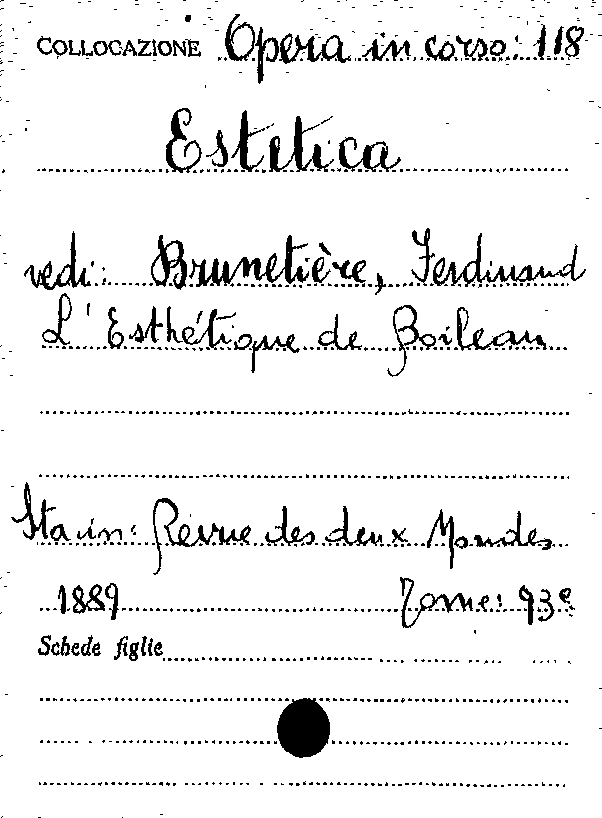 COLLOCAZIONE Opera in corso: 118
Estetica
vedi: Brunetière, Ferdinand
L'Esthétique de Boileau
Sta in: Revue des deux Mondes
1889 Tome: 93e
Schede figlie